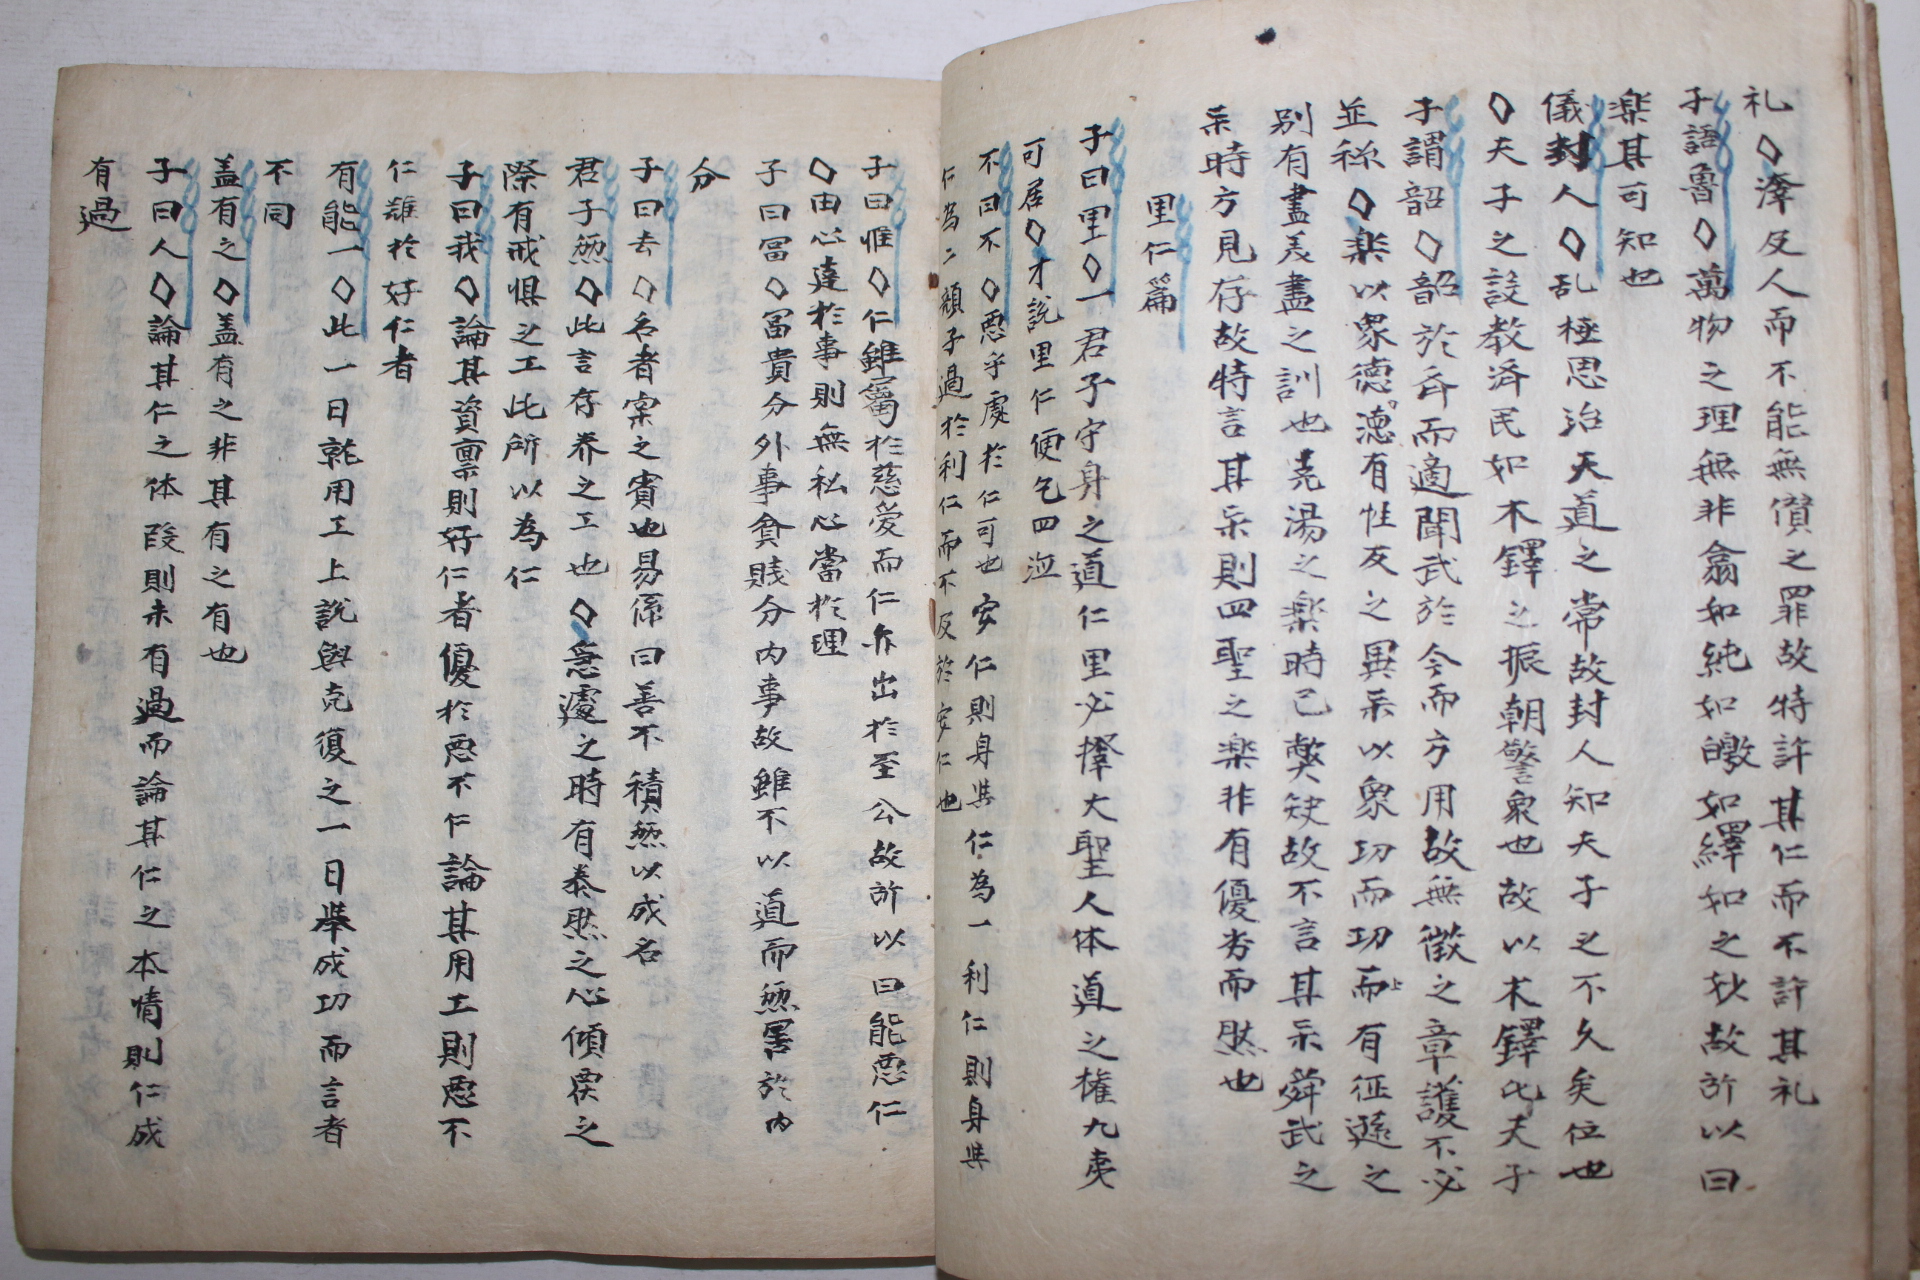 礼◇澤及人而不能無僨之罪故特許其仁而不許其礼
子語魯◇萬物之理無非翕如純如皦如繹如之妙故所以曰
楽其可知也
儀封人◇乱極思治天道之常故封人知夫子之不久矣位也
◇天子之設教済民如木鐸之振朝警衆也故以木鐸比夫子
子謂韶◇韶於斉而適聞武於今而方用故無徵之章護不必
並称◇楽以象德德有性反之異乐以象功而功而上有征遜之
別有盡美盡之訓也尭湯之楽時已弊缺故不言其乐舜武之
乐時方見存故特言其乐則四聖之楽非有優劣而然也
里仁篇
子曰里◇一君子守身之道仁里必擇大聖人体道之権九夷
可居◇才說里仁便包四
不曰不◇惡乎處於仁可也安仁則身與仁為一利仁則身與
仁為二頼子過於利仁而不反於安仁也
子曰惟◇仁雖屬於慈愛而仁亦出於至公故所以曰能惡仁
◇由心達於事則無私心當於理
子曰冨◇冨貴分外事貪賤分内事故雖不以道而㷼害於内
分
子曰去◇名者宲之賓也易係曰善不積㷼以成名
君子㷼◇此言存养之工也◇急遽之時有泰然之心傾戻之
際有戒惧之工此所以為仁
子曰我◇論其資禀則好仁者優於惡不仁論其用工則惡不
仁難於好仁者
有能一◇此一日就用工上說與克復之一日举成功而言者
不同
盖有之◇盖有之非其有之有也
子曰人◇論其仁之体段則未有過而論其仁之本情則仁成
有過